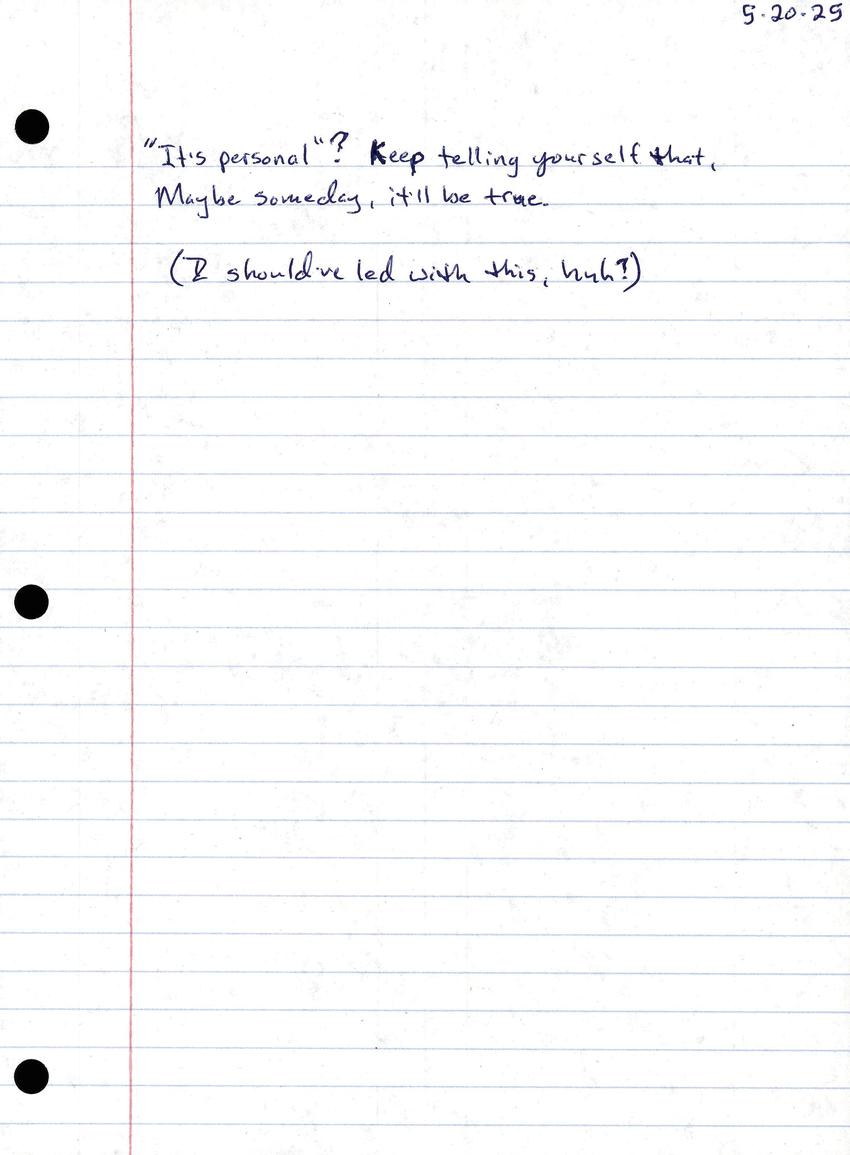 5-20-25
"It's personal"? Keep telling yourself that,
Maybe someday, it'll be true.
(I should've led with this, huh?)